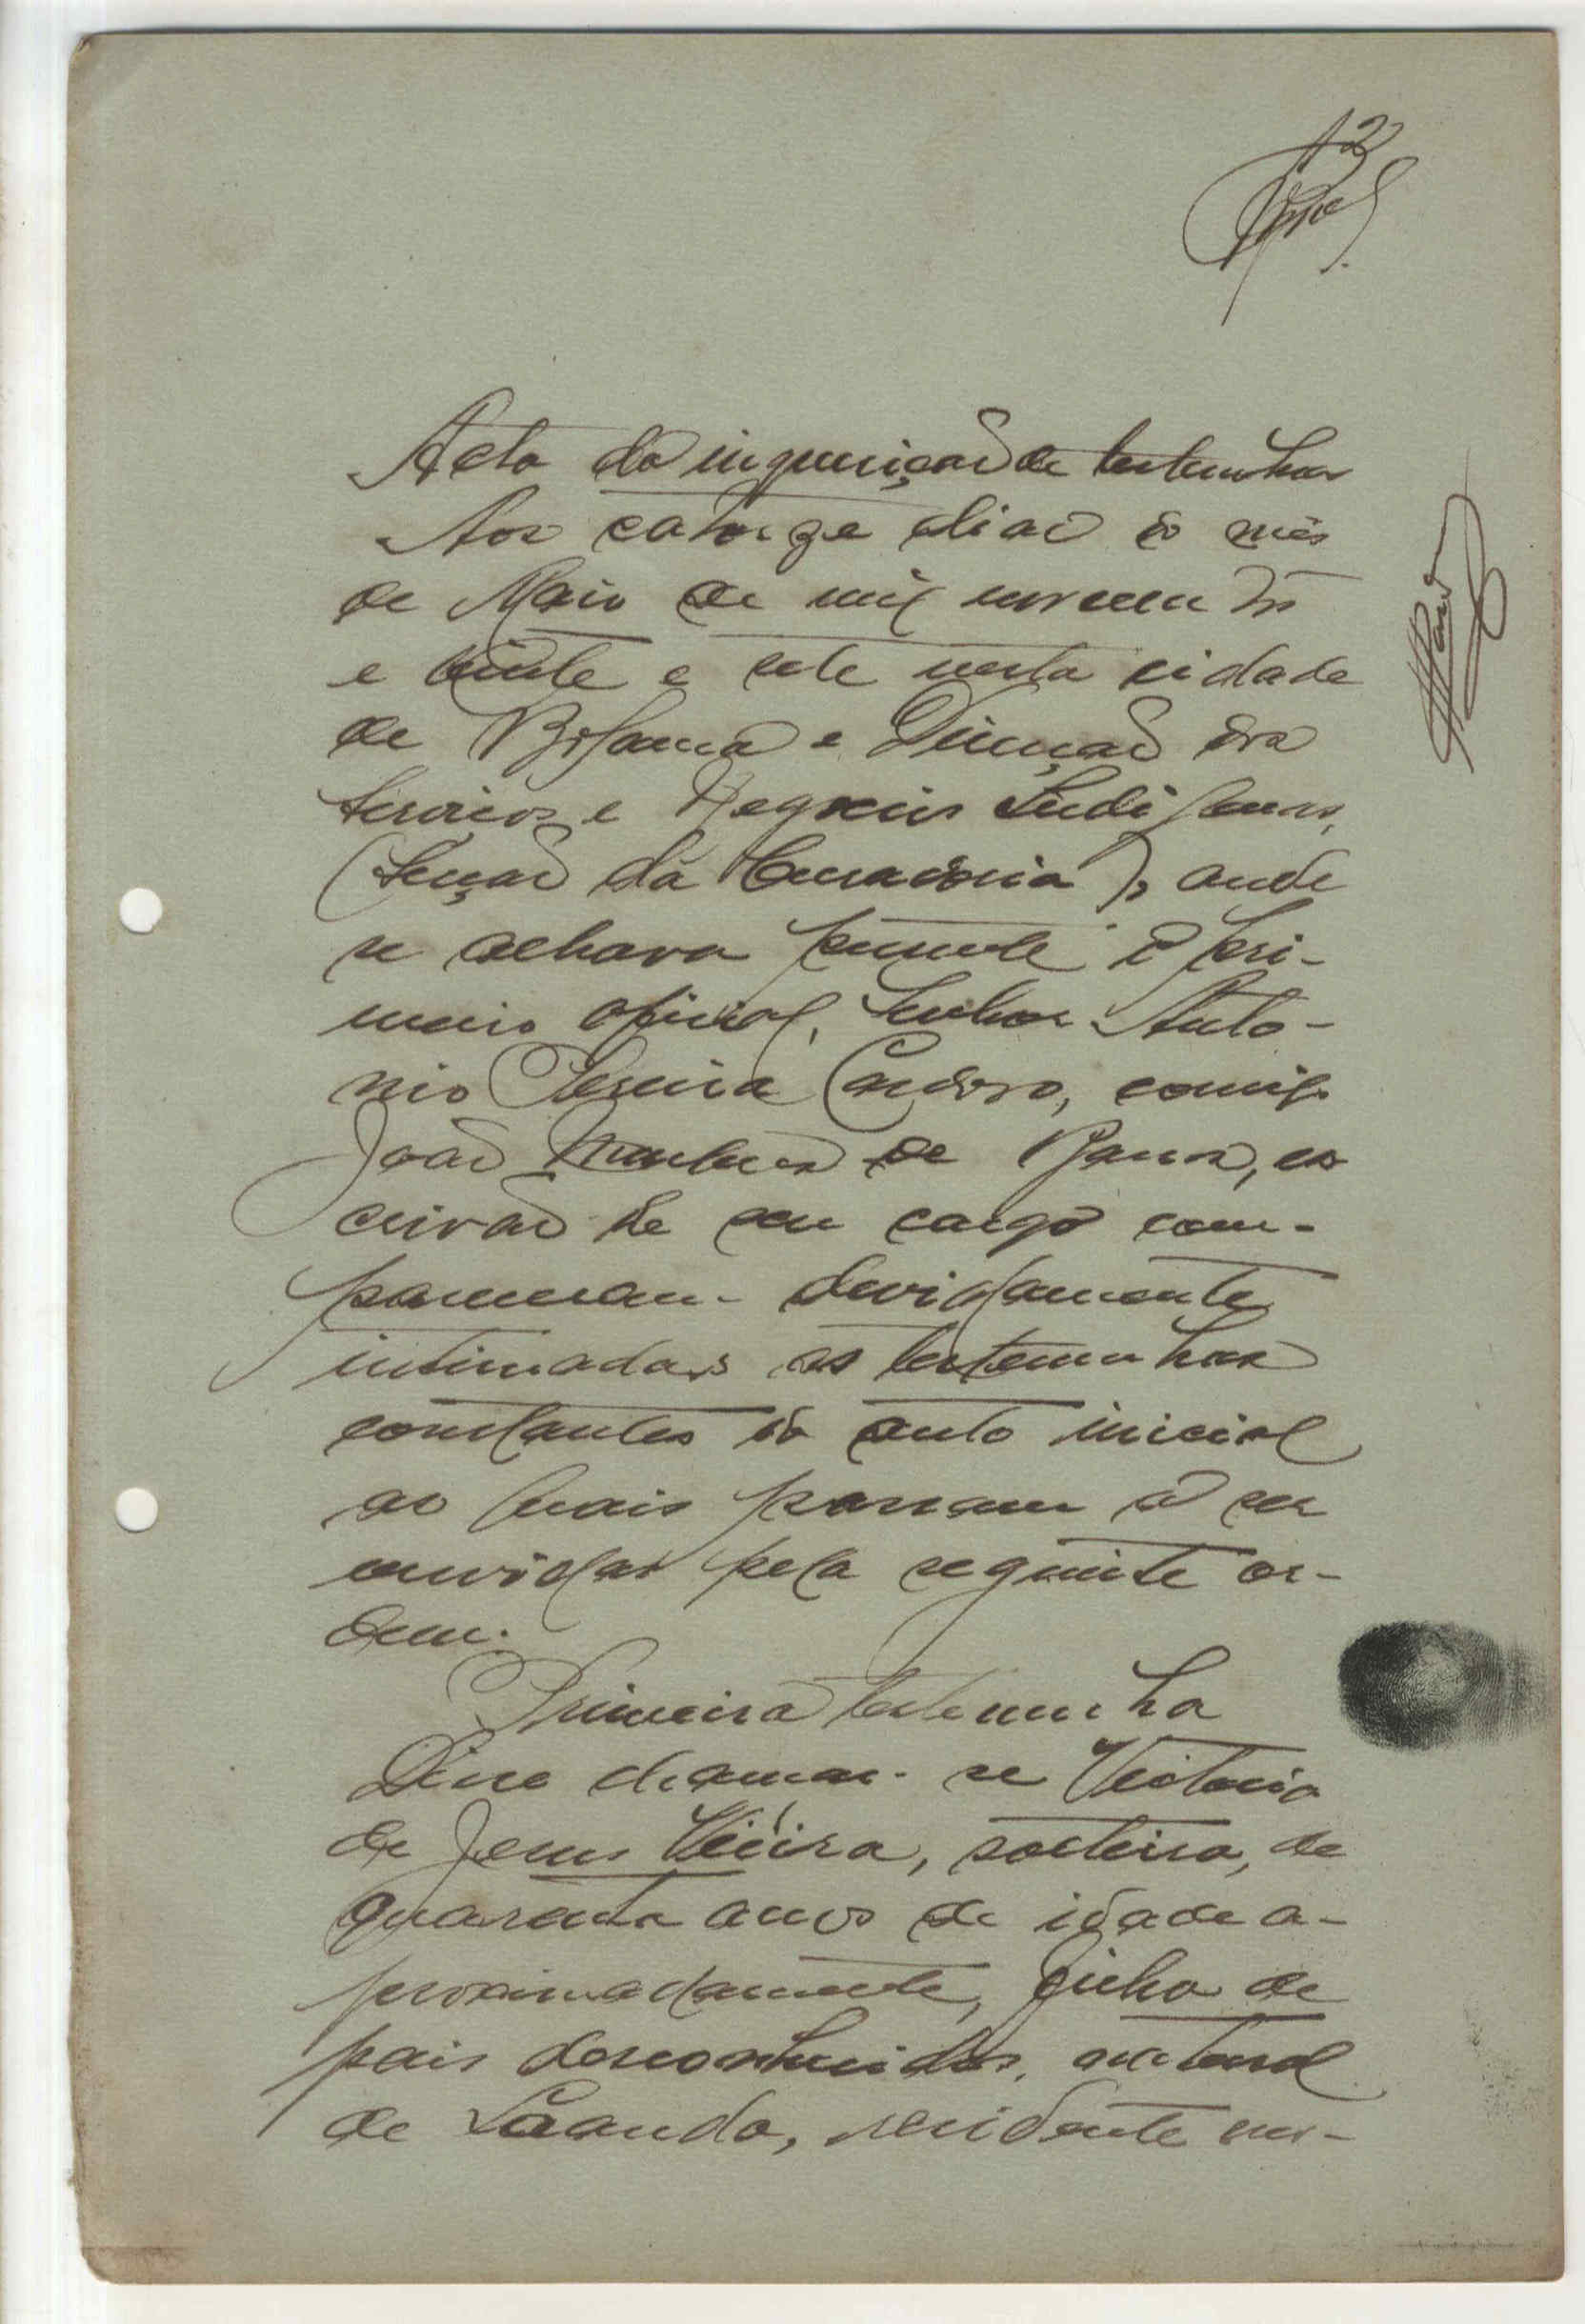 12
Acta da inquirição de testemunhas
Aos catorze dias do mês
de Maio de mil novecentos
e vinte e sete nesta cidade
de Bolama e Direcção dos
Serviços e Negocios Indigenas,
(Secção da Curadoria), onde
se achava presente o pri-
meiro oficial, Senhor Anto-
nio Pereira Cardoso, comigo
João de Barros, es
crivão de seu cargo com-
pareceram devidamente
intimadas as testemunhas
constantes do auto inicial
as quais passam a ser
ouvidas pela seguinte or-
dem.
Primeira testemunha
Disse chamar-se Victoria
de Jesus Vieira, solteira, de
quarenta anos de idade a-
proximadamente, filha de
pais desconhecidos, natural
de Loanda, residente nes-